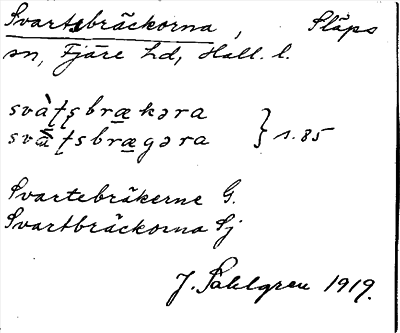 Svartsbräckorna, Släps
sn, Fjäre hd, Hall. l.
svàʈʂbrækəra
svā̀ʈʂbrægəra } 1.85
Svartebräkerne G.
Svartbräckorna Sj
J. Sahlgren 1919.